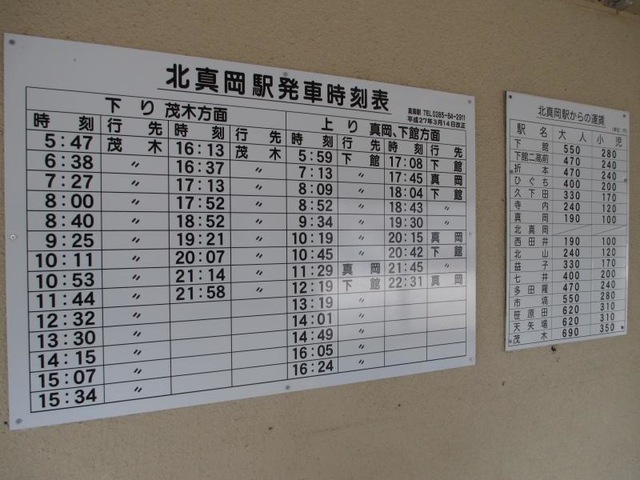 北真岡駅発車時刻表
真岡駅 TEL0285-84-2911
平成27年3月14日改正
下り 茂木方面 上り 真岡、下館方面
時刻 行先 時刻 行先 時刻 行先 時刻 行先
5:47 茂木 16:13 茂木 5:59 下館 17:08 下館
6:38 〃 16:37 〃 7:13 〃 17:45 真岡
7:27 〃 17:13 〃 8:09 〃 18:04 下館
8:00 〃 17:52 〃 8:52 〃 18:43 〃
8:40 〃 18:52 〃 9:34 〃 19:30 〃
9:25 〃 19:21 〃 10:19 〃 20:15 真岡
10:11 〃 20:07 〃 10:45 〃 20:42 下館
10:53 〃 21:14 〃 11:29 真岡 21:45 〃
11:44 〃 21:58 〃 12:19 下館 22:31 真岡
12:32 〃 13:19 〃
13:30 〃 14:01 〃
14:15 〃 14:49 〃
15:07 〃 16:05 〃
15:34 〃 16:24 〃
北真岡駅からの運賃
駅名 大人 小児
下館 550 280
下館二高前 470 240
折本 470 240
ひぐち 400 200
久下田 330 170
寺内 240 120
真岡 190 100
北真岡
西田井 190 100
北山 240 120
益子 330 170
七井 400 200
多田羅 470 240
市塙 550 280
笹原田 620 310
天矢場 620 310
茂木 690 350